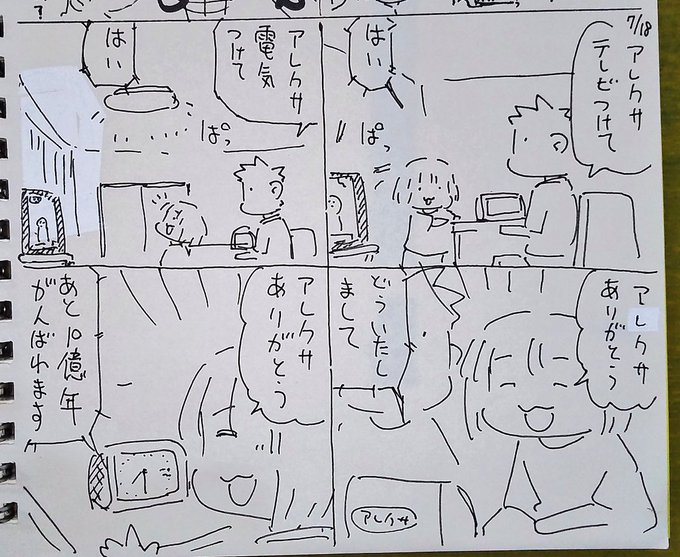 7/18
アレクサ
テレビつけて
はい
ぱっ
アレクサ
電気
つけて
はい
ぱっ
アレクサ
ありがとう
どういたし
まして
アレクサ
アレクサ
ありがとう
あと10億年
がんばれます